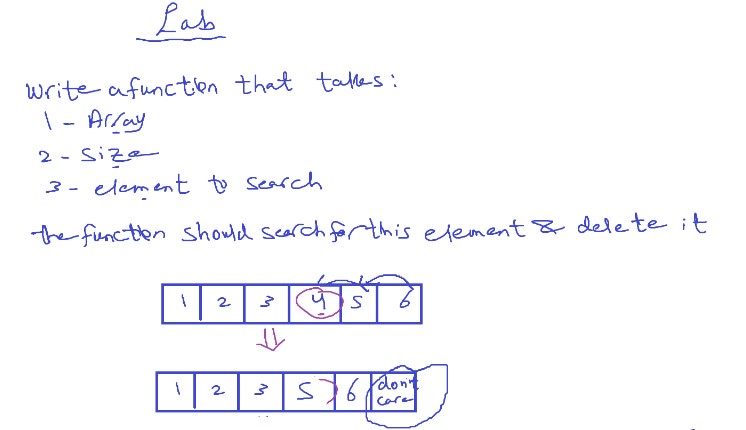 Lab
Write a function that takes:
1 - Array
2 - Size
3 - element to search
the function should search for this element & delete it
1 2 3 4 5 6
1 2 3 5 6 don't care